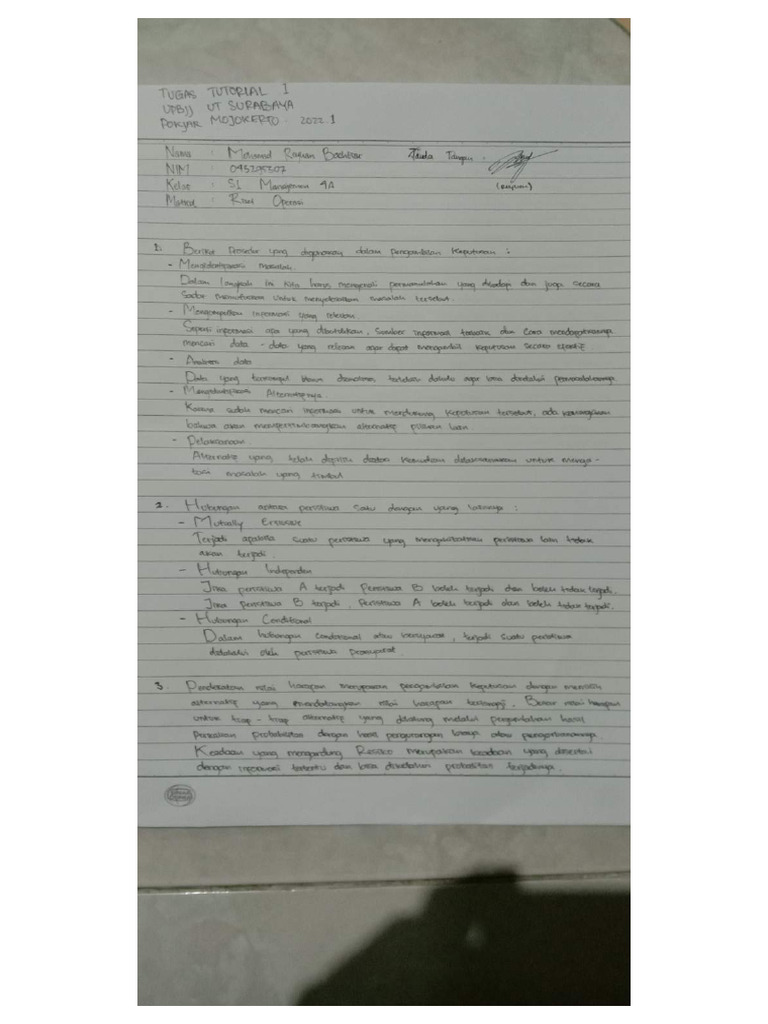 TUGAS TUTORIAL 1
UPBJJ UT SURABAYA
POKJAR MOJOKERTO. 2022.1
Nama : Mohamad Tanda Tangan :
NIM :
Kelas : S1 Manajemen 4A
Matkul : Riset Operasi
1. Berikut Prosedur yang digunakan dalam Pengambilan Keputusan :
- Mengidentifikasi masalah.
Dalam langkah ini kita harus mengenali permasalahan yang dihadapi dan juga secara
sadar memutuskan untuk menyelesaikan masalah tersebut.
- Mengumpulkan informasi yang relevan.
Seperti informasi apa yang dibutuhkan, sumber informasi terbaik dan cara mendapatkannya
mencari data - data yang relevan agar dapat mengambil keputusan secara efektif
- Analisis data
Data yang terkumpul dianalisa terlebih dahulu agar bisa permasalahannya.
- Mengidentifikasi Alternatifnya.
Karena sudah mencari informasi untuk mendukung keputusan tersebut, ada kemungkinan
bahwa akan mempertimbangkan alternatif pilihan lain.
- Pelaksanaan
Alternatif yang telah dipilih kemudian dilaksanakan untuk menga-
tasi masalah yang timbul
2. Hubungan antara peristiwa satu dengan yang lainnya :
- Mutually Exclusive
Terjadi apabila suatu peristiwa yang mengakibatkan peristiwa lain tidak
akan terjadi.
- Hubungan Independen
Jika peristiwa A terjadi Peristiwa B boleh terjadi dan boleh tidak terjadi.
Jika Peristiwa B terjadi, Peristiwa A boleh terjadi dan boleh tidak terjadi.
- Hubungan Conditional
Dalam hubungan conditional atau bersyarat, terjadi suatu peristiwa
didahului oleh peristiwa prasyarat.
3. Pendekatan nilai harapan merupakan pengambilan keputusan dengan memilih
alternatif yang mendatangkan nilai harapan tertinggi. Besar nilai harapan
untuk tiap - tiap alternatif yang dihitung melalui hasil
Perkalian probabilitas dengan hasil pengurangan atau
Keadaan yang mengandung Resiko merupakan keadaan yang disertai
dengan informasi tertentu dan bisa diketahui probabilitas terjadinya.